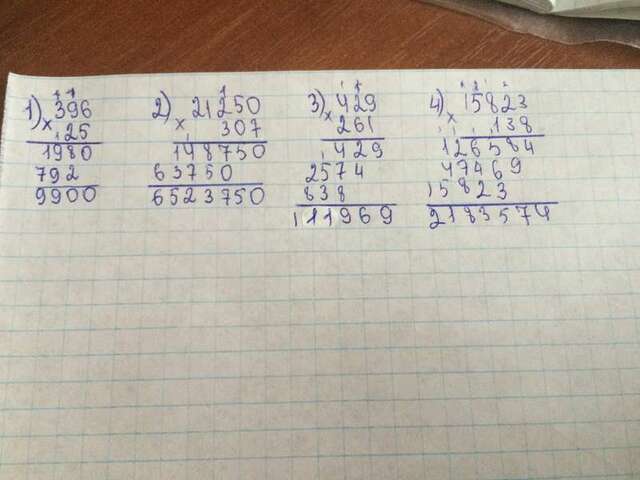 1) 396
× 25
1980
792
9900
2) 21250
× 307
148750
63750
6523750
3) 429
× 261
429
2574
838
111969
4) 15823
× 138
126584
47469
15823
2183574